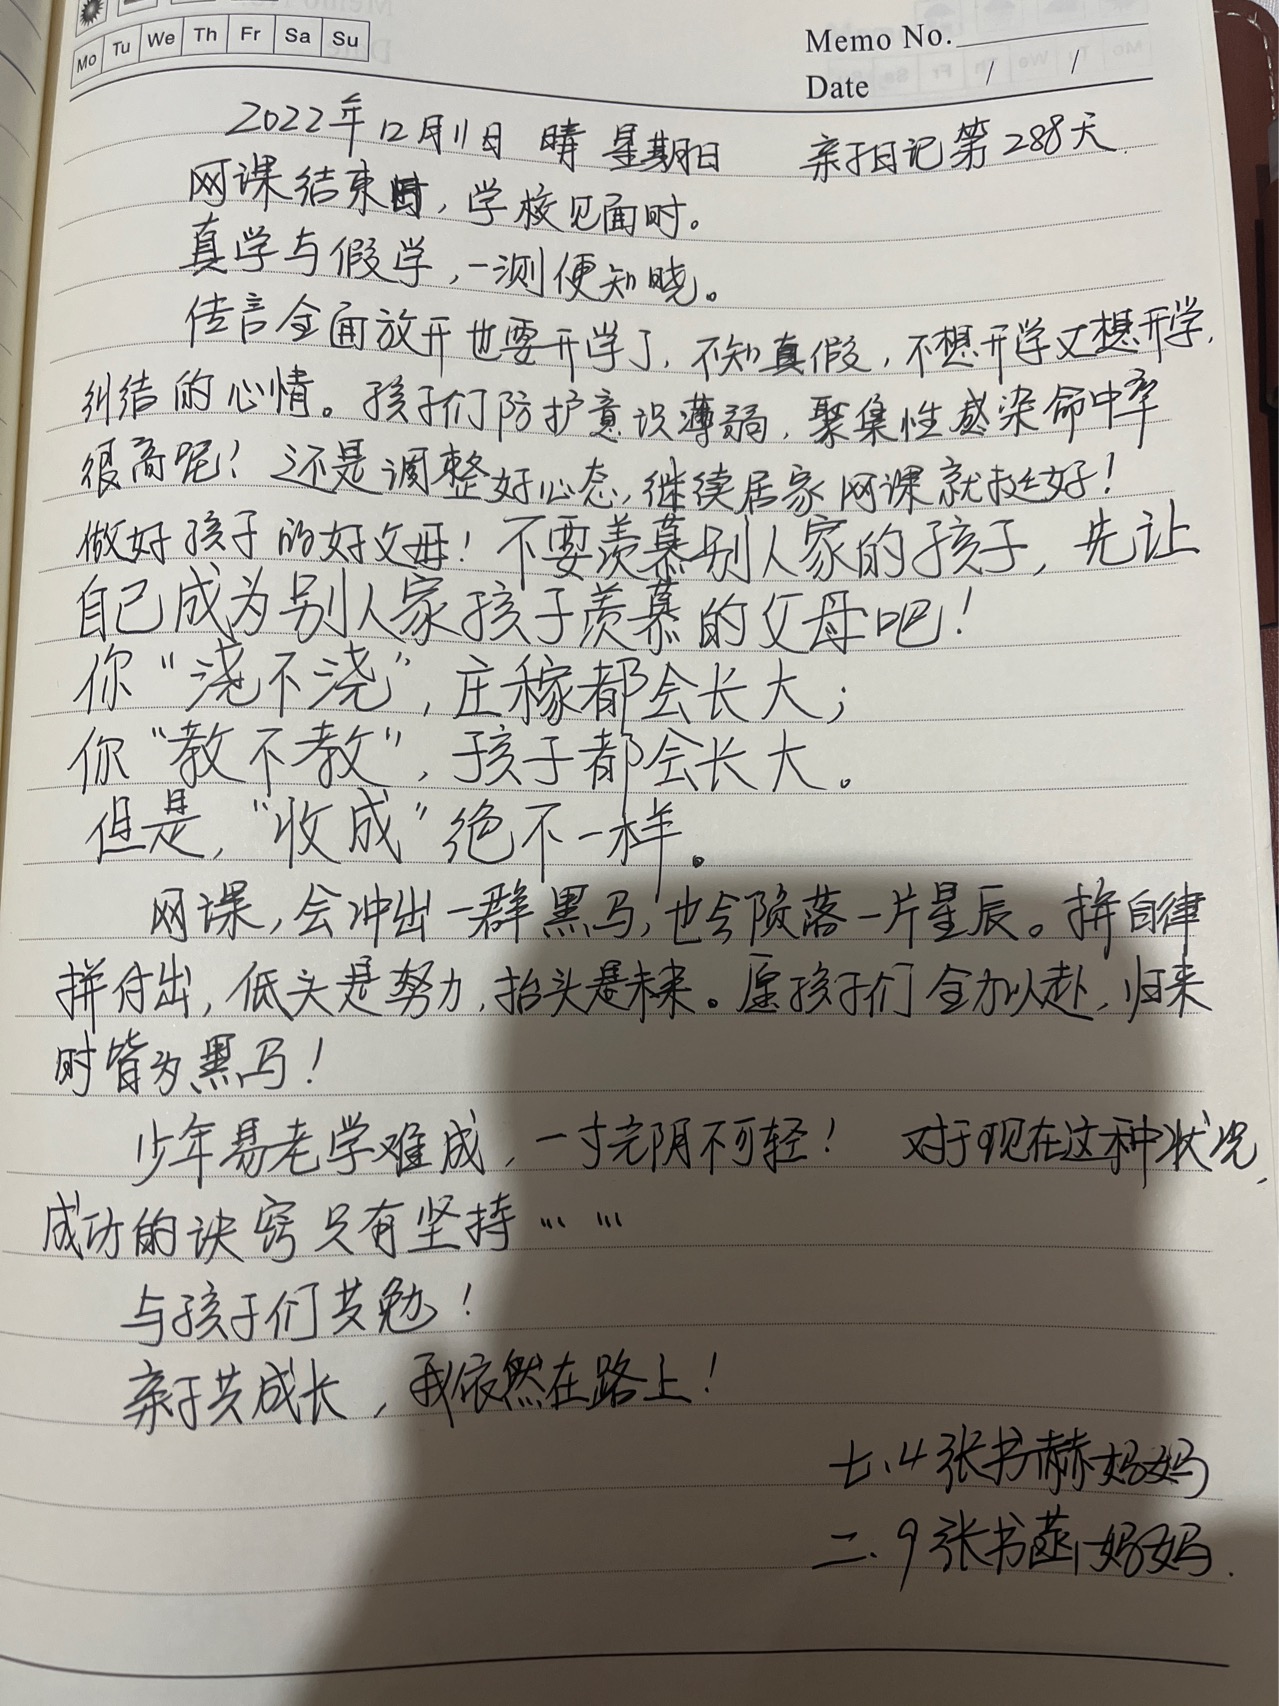 Mo Tu We Th Fr Sa Su
Memo No.
Date / /
2022年12月11日 晴 星期日 亲子日记第288天.
网课结束时,学校见面时。
真学与假学,一测便知晓。
传言全面放开也要开学了,不知真假,不想开学又想开学,
纠结的心情。孩子们防护意识薄弱,聚集性感染命中率
很高呢!还是调整好心态,继续居家网课就挺好!
做好孩子的好父母!不要羡慕别人家的孩子,先让
自己成为别人家孩子羡慕的父母吧!
你“浇不浇”,庄稼都会长大;
你“教不教”,孩子都会长大。
但是,“收成”绝不一样。
网课,会冲出一群黑马,也会陨落一片星辰。拼自律
拼付出,低头是努力,抬头是未来。愿孩子们全力以赴,归来
时皆为黑马!
少年易老学难成,一寸光阴不可轻! 对于现在这种状况,
成功的诀窍只有坚持……
与孩子们共勉!
亲子共成长,我依然在路上!
七.4张书赫妈妈
二.9张书菡妈妈.